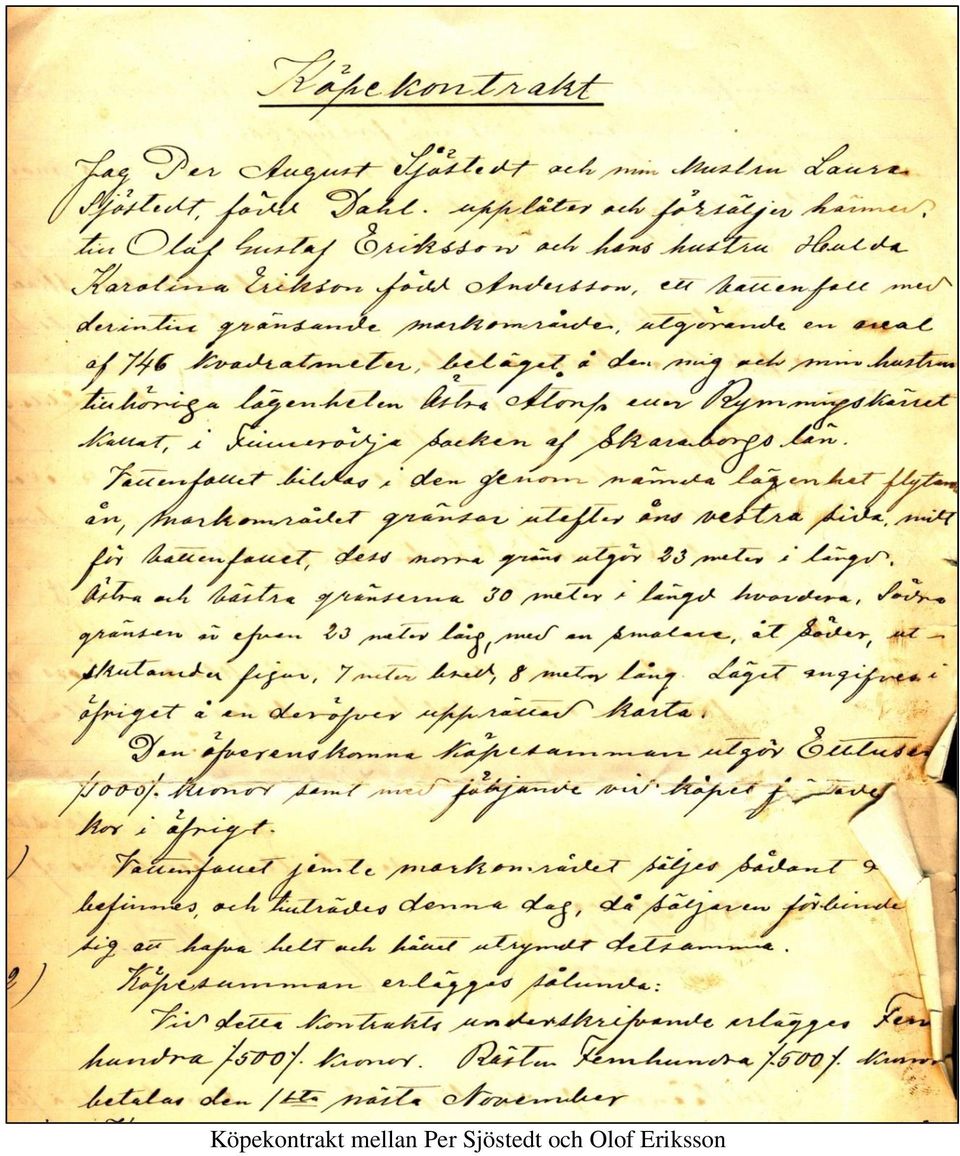 Köpekontrakt
Jag Per August Sjöstedt och min hustru Laura
Sjöstedt, född Dahl. upplåter och försäljer härmed,
till Olof Gustaf Eriksson och hans hustru Hulda
Karolina Erikson född Andersson, ett vattenfall med
derintill gränsande markområde, utgörande en areal
af 746 kvadratmeter, beläget å den mig och min hustru
tillhöriga lägenheten Östra Åtorp eller Rymningskärret
kallat, i Finnerödja socken af Skaraborgs län.
Vattenfallet bildas i den genom nämda lägenhet flytan
ån, markområdet gränsar utefter åns vestra sida, mitt
för vattenfallet, dess norra gräns utgör 23 meter i längd.
Östra och västra gränserna 30 meter i längd hvardera, Södra
gränsen är efven 23 meter lång, med en smalare, åt söder, ut-
skjutande figur, 7 meter bred, 8 meter lång. Läget angifves i
öfriget å en deröfver upprättad karta.
Den öfverenskomna köpesumman utgör Ettusen
/1000/. kronor samt med följande vid köpet
kor i öfrigt.
) Vattenfallet jemte markområdet säljes sådant
befinnes, och tillträdes denna dag, då säljaren förbinde
sig att hafva helt och hållet utrymdt detsamma.
2) Köpesumman erlägges sålunda:
Vid detta kontrakts underskrifvande erlägges Fem
hundra /500/. kronor. Rästen Femhundra /500/. kronor
betalas den 1sta nästa November
Köpekontrakt mellan Per Sjöstedt och Olof Eriksson